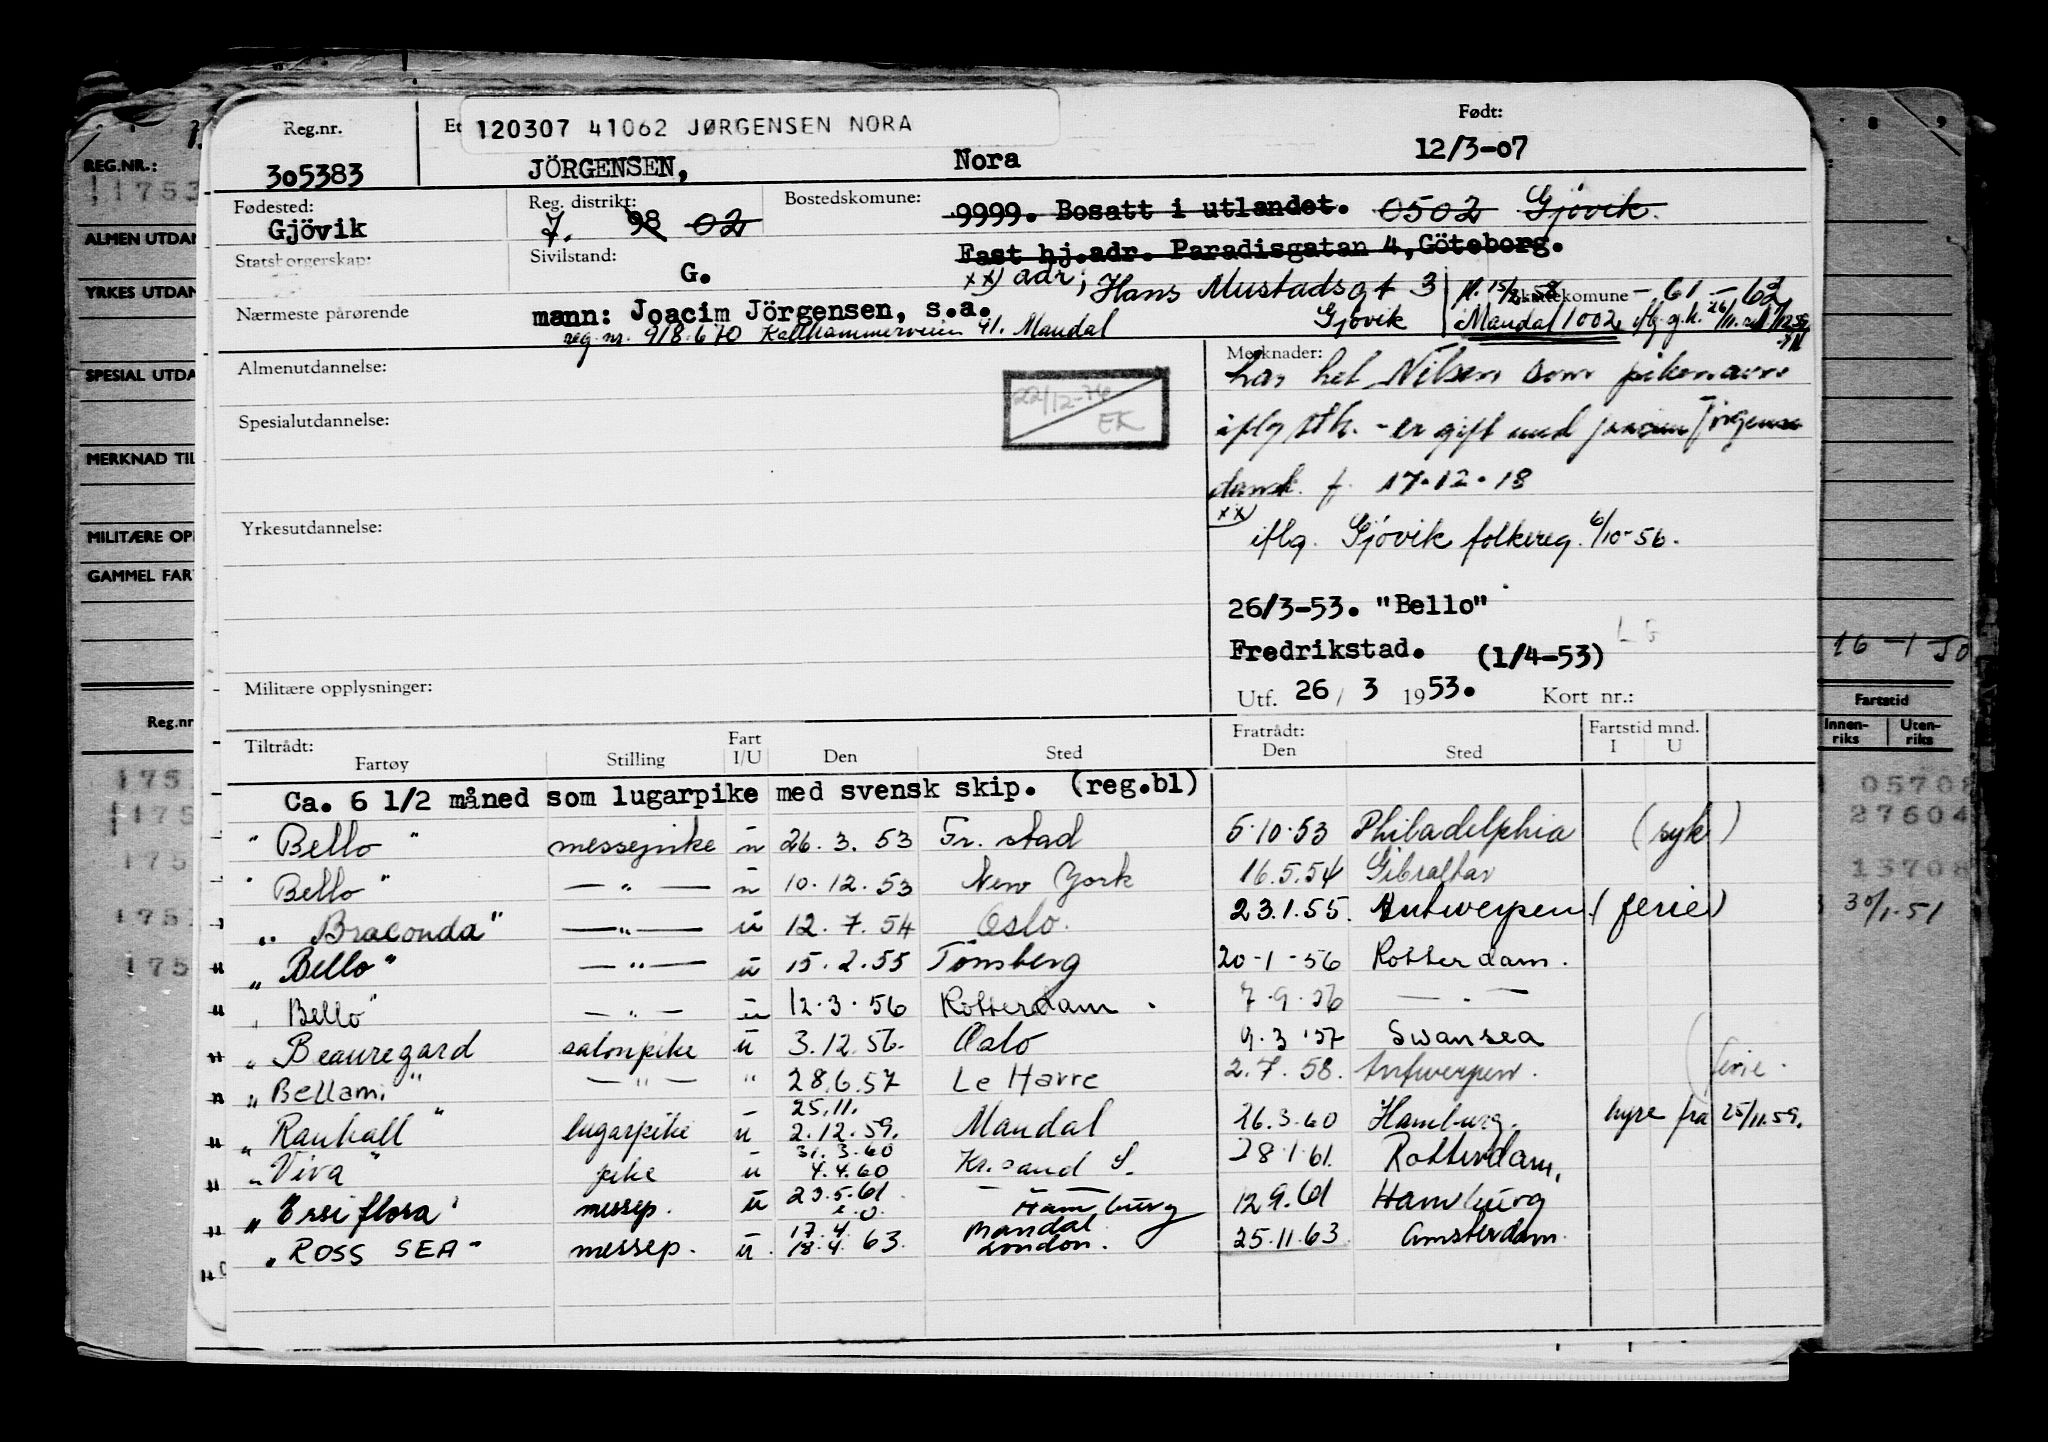 Reg.nr. Et 120307 41062 JØRGENSEN NORA Født:
305383 JÖRGENSEN, Nora 12/3-07
Fødested: Gjövik Reg. distrikt: 7. 98 02 Bostedskomune: 9999. Bosatt i utlandet. 0502 Gjövik.
Fast hj.adr. Paradisgatan 4, Göteborg.
Statsborgerskap: Sivilstand: G. xx) adr; Hans Mustadsgt 3 Skattekomune - 61 - 62
Gjövik Mandal 1002
Nærmeste pårørende mann: Joacim Jörgensen, s.a.
reg. nr. 918.670 Kallhammerveien 41. Mandal
Almenutdannelse:
22/12-76
EK
Spesialutdannelse:
Yrkesutdannelse:
Militære opplysninger:
Merknader:
har het Nilsen som pikenavn
iflg sth. - er gift med Joacim Jörgensen
dansk f. 17-12-18
xx)
iflg. Gjövik folkereg. 6/10-56.
26/3-53. "Bello"
Fredrikstad. (1/4-53) LG
Utf. 26 / 3 1953. Kort nr.:
Tiltrådt: Fratrådt: Fartstid mnd.
Fartøy Stilling Fart I/U Den Sted Den Sted I U
Ca. 6 1/2 måned som lugarpike med svensk skip. (reg.bl)
"Bello" messepike u 26.3.53 Fr.stad 5.10.53 Philadelphia (syk)
"Bello" — " — u 10.12.53 New York 16.5.54 Gibraltar
"Braconda" — " — u 12.7.54 Oslo. 23.1.55. Antwerpen. (ferie)
"Bello" — " — u 15.2.55 Tönsberg 20-1-56 Rotterdam.
"Bello" — " — u 12.3.56 Rotterdam. 7.9.56 — " —
"Beauregard salonpike u 3.12.56. Oslo 9.3.57 Swansea
"Bellami" — " — " 28.6.57 Le Havre 2.7.58. Antwerpen. (ferie.
25.11.
"Ranhall" lugarpike u 2.12.59. Mandal 26.3.60 Hamburg. hyre fra 25/11.59.
31.3.60
"Viva" pike u 4.4.60 Kr.sand S. 28.1.61. Rotterdam.
"Ersiflora" messep. u 23.5.61. Hamburg 12.9.61 Hamburg
17.4 Mandal
"ROSS SEA" messep. u. 18.4.63. London. 25.11.63. Amsterdam.
REG.NR.:
ALMEN UTDAN
YRKES UTDAN
SPESIAL UTDA
MERKNAD TIL
MILITÆRE OPP
GAMMEL FAR
Reg.nr
8 9
16-1-50
Fartstid
Innen-riks Uten-riks
05708
27604
13708
30/1.51